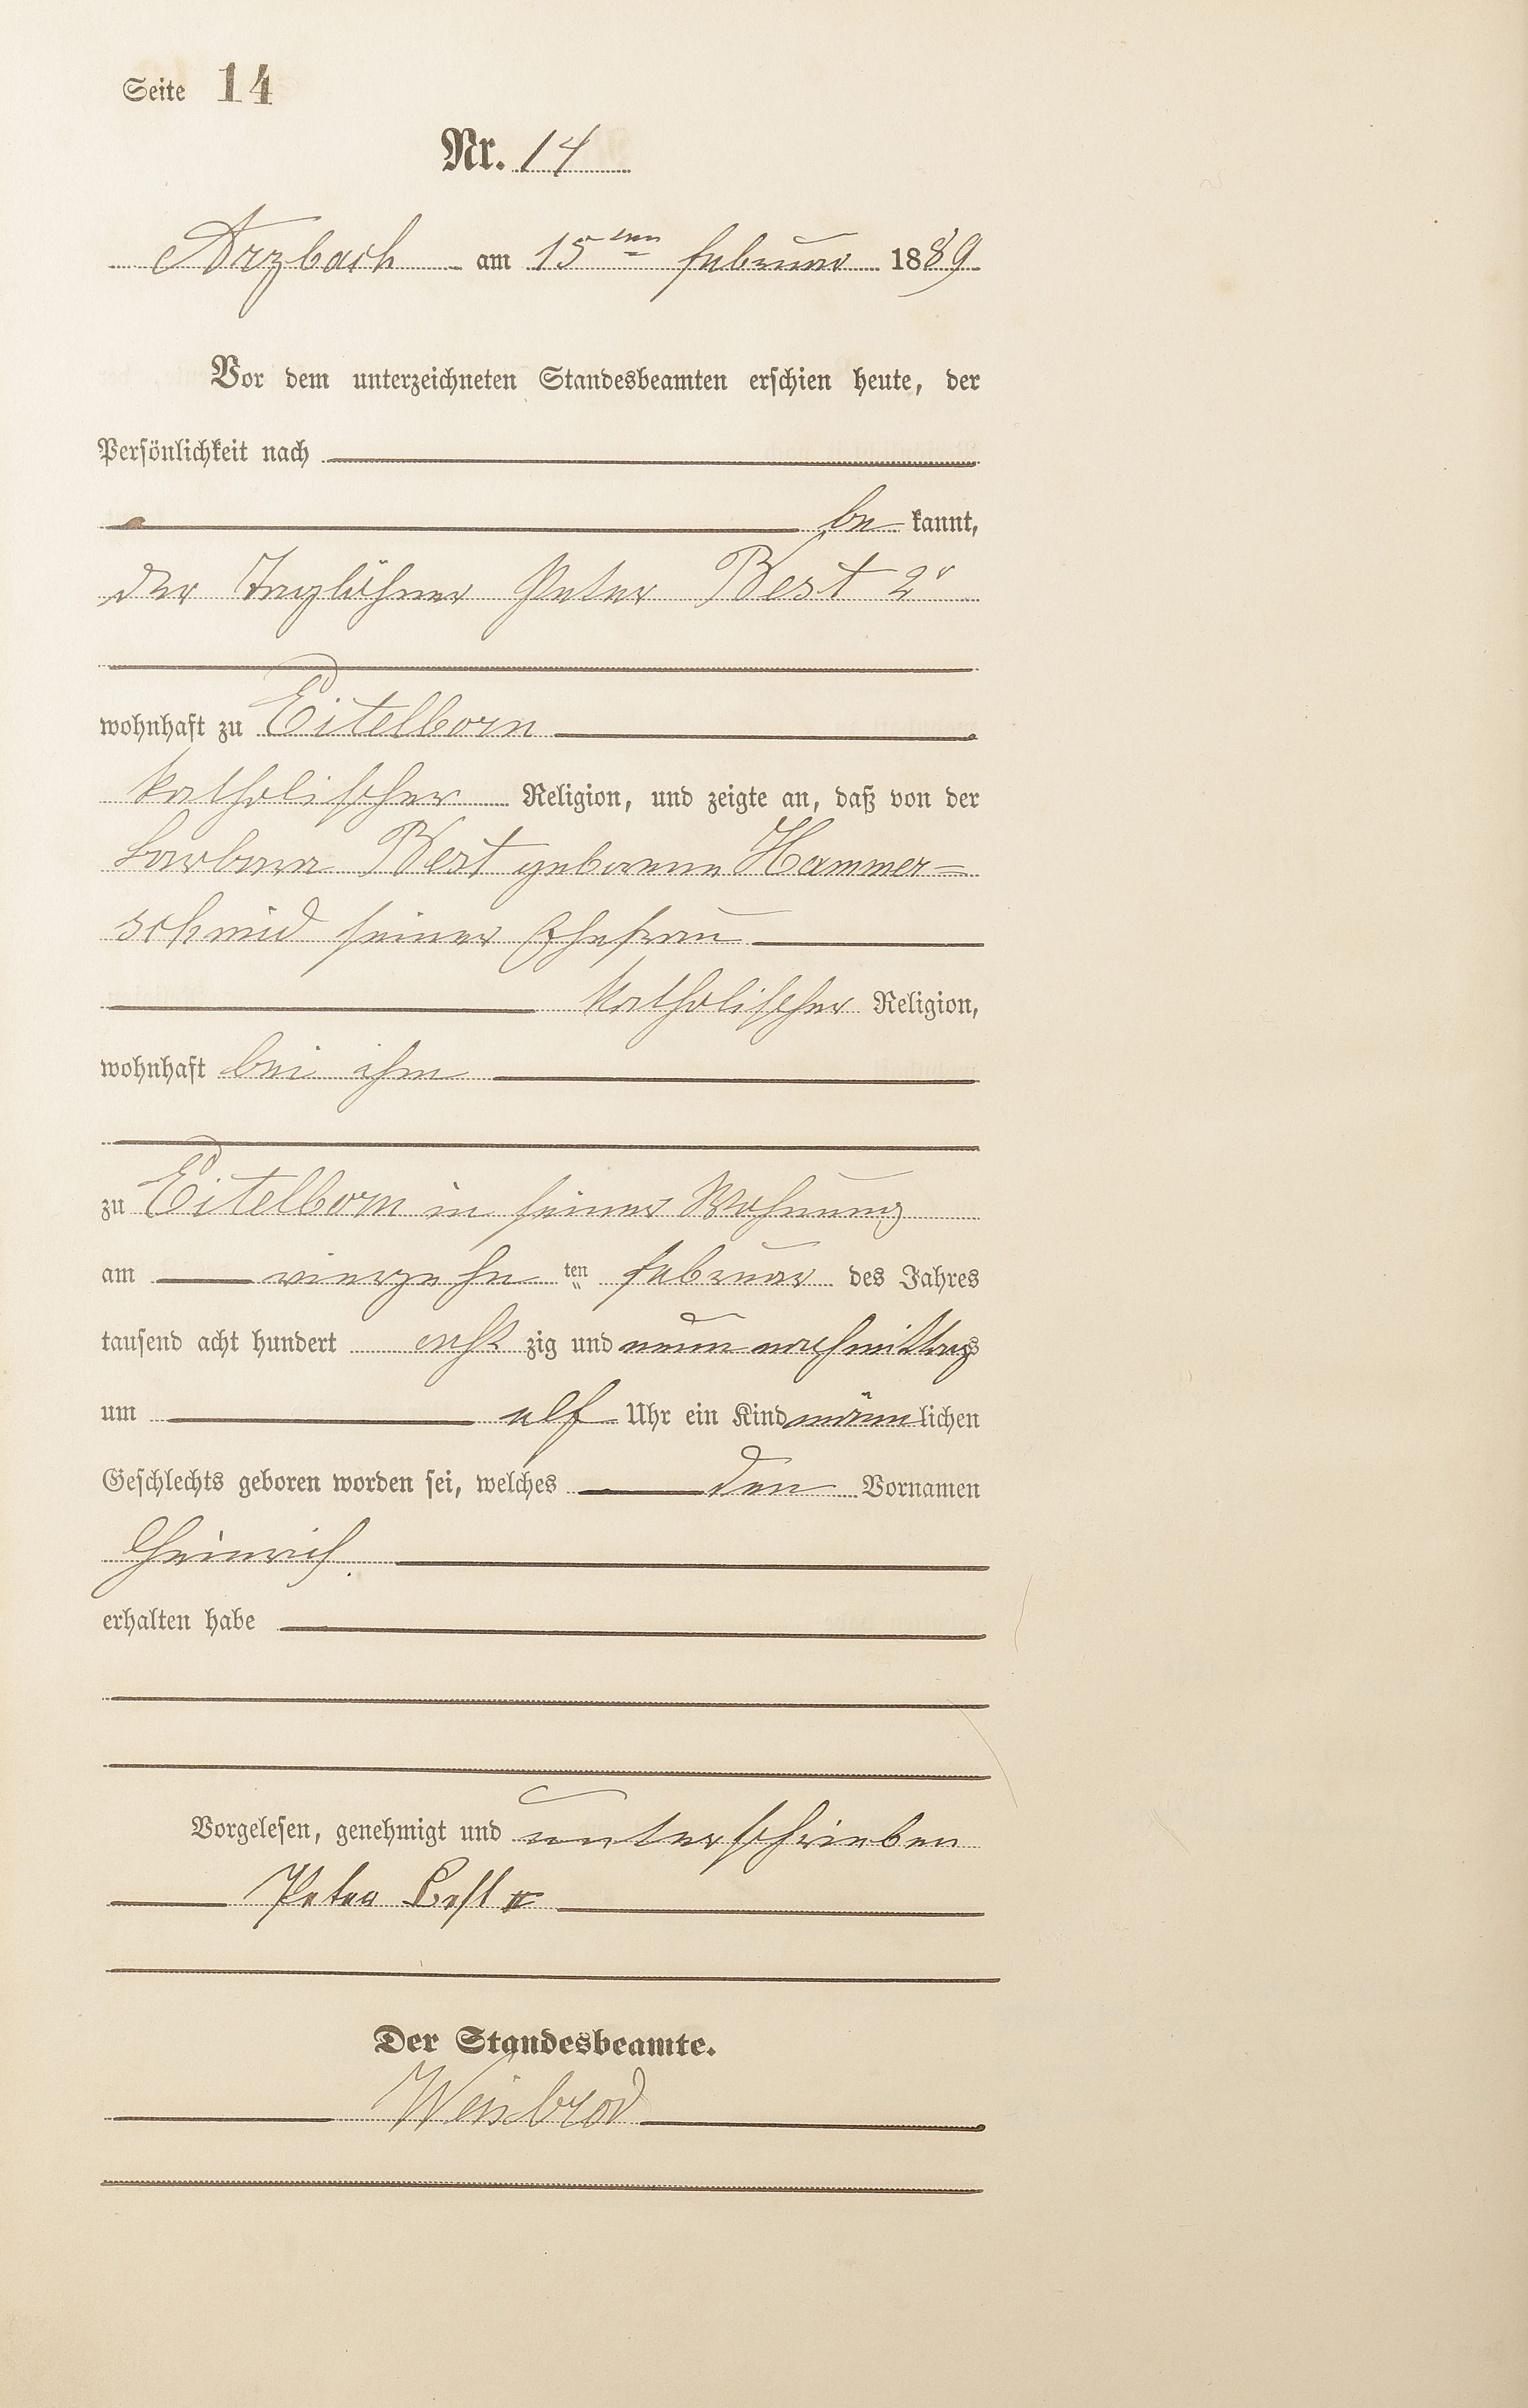 Seite 14
Nr. 14
Arzbach am 15ten Februar 1889
Vor dem unterzeichneten Standesbeamten erschien heute, der
Persönlichkeit nach
be kannt,
der Taglöhner Peter Best 2r
wohnhaft zu Eitelborn
katholischer Religion, und zeigte an, daß von der
Barbara Best geborene Hammer=
schmid seiner Ehefrau
katholischer Religion,
wohnhaft bei ihm
zu Eitelborn in seiner Wohnung
am vierzehn ten Februar des Jahres
tausend acht hundert acht zig und neun nachmittags
um elf Uhr ein Kind männ lichen
Geschlechts geboren worden sei, welches den Vornamen
Heinrich
erhalten habe
Vorgelesen, genehmigt und unterschrieben
Peter Best II
Der Standesbeamte.
Weisbrod